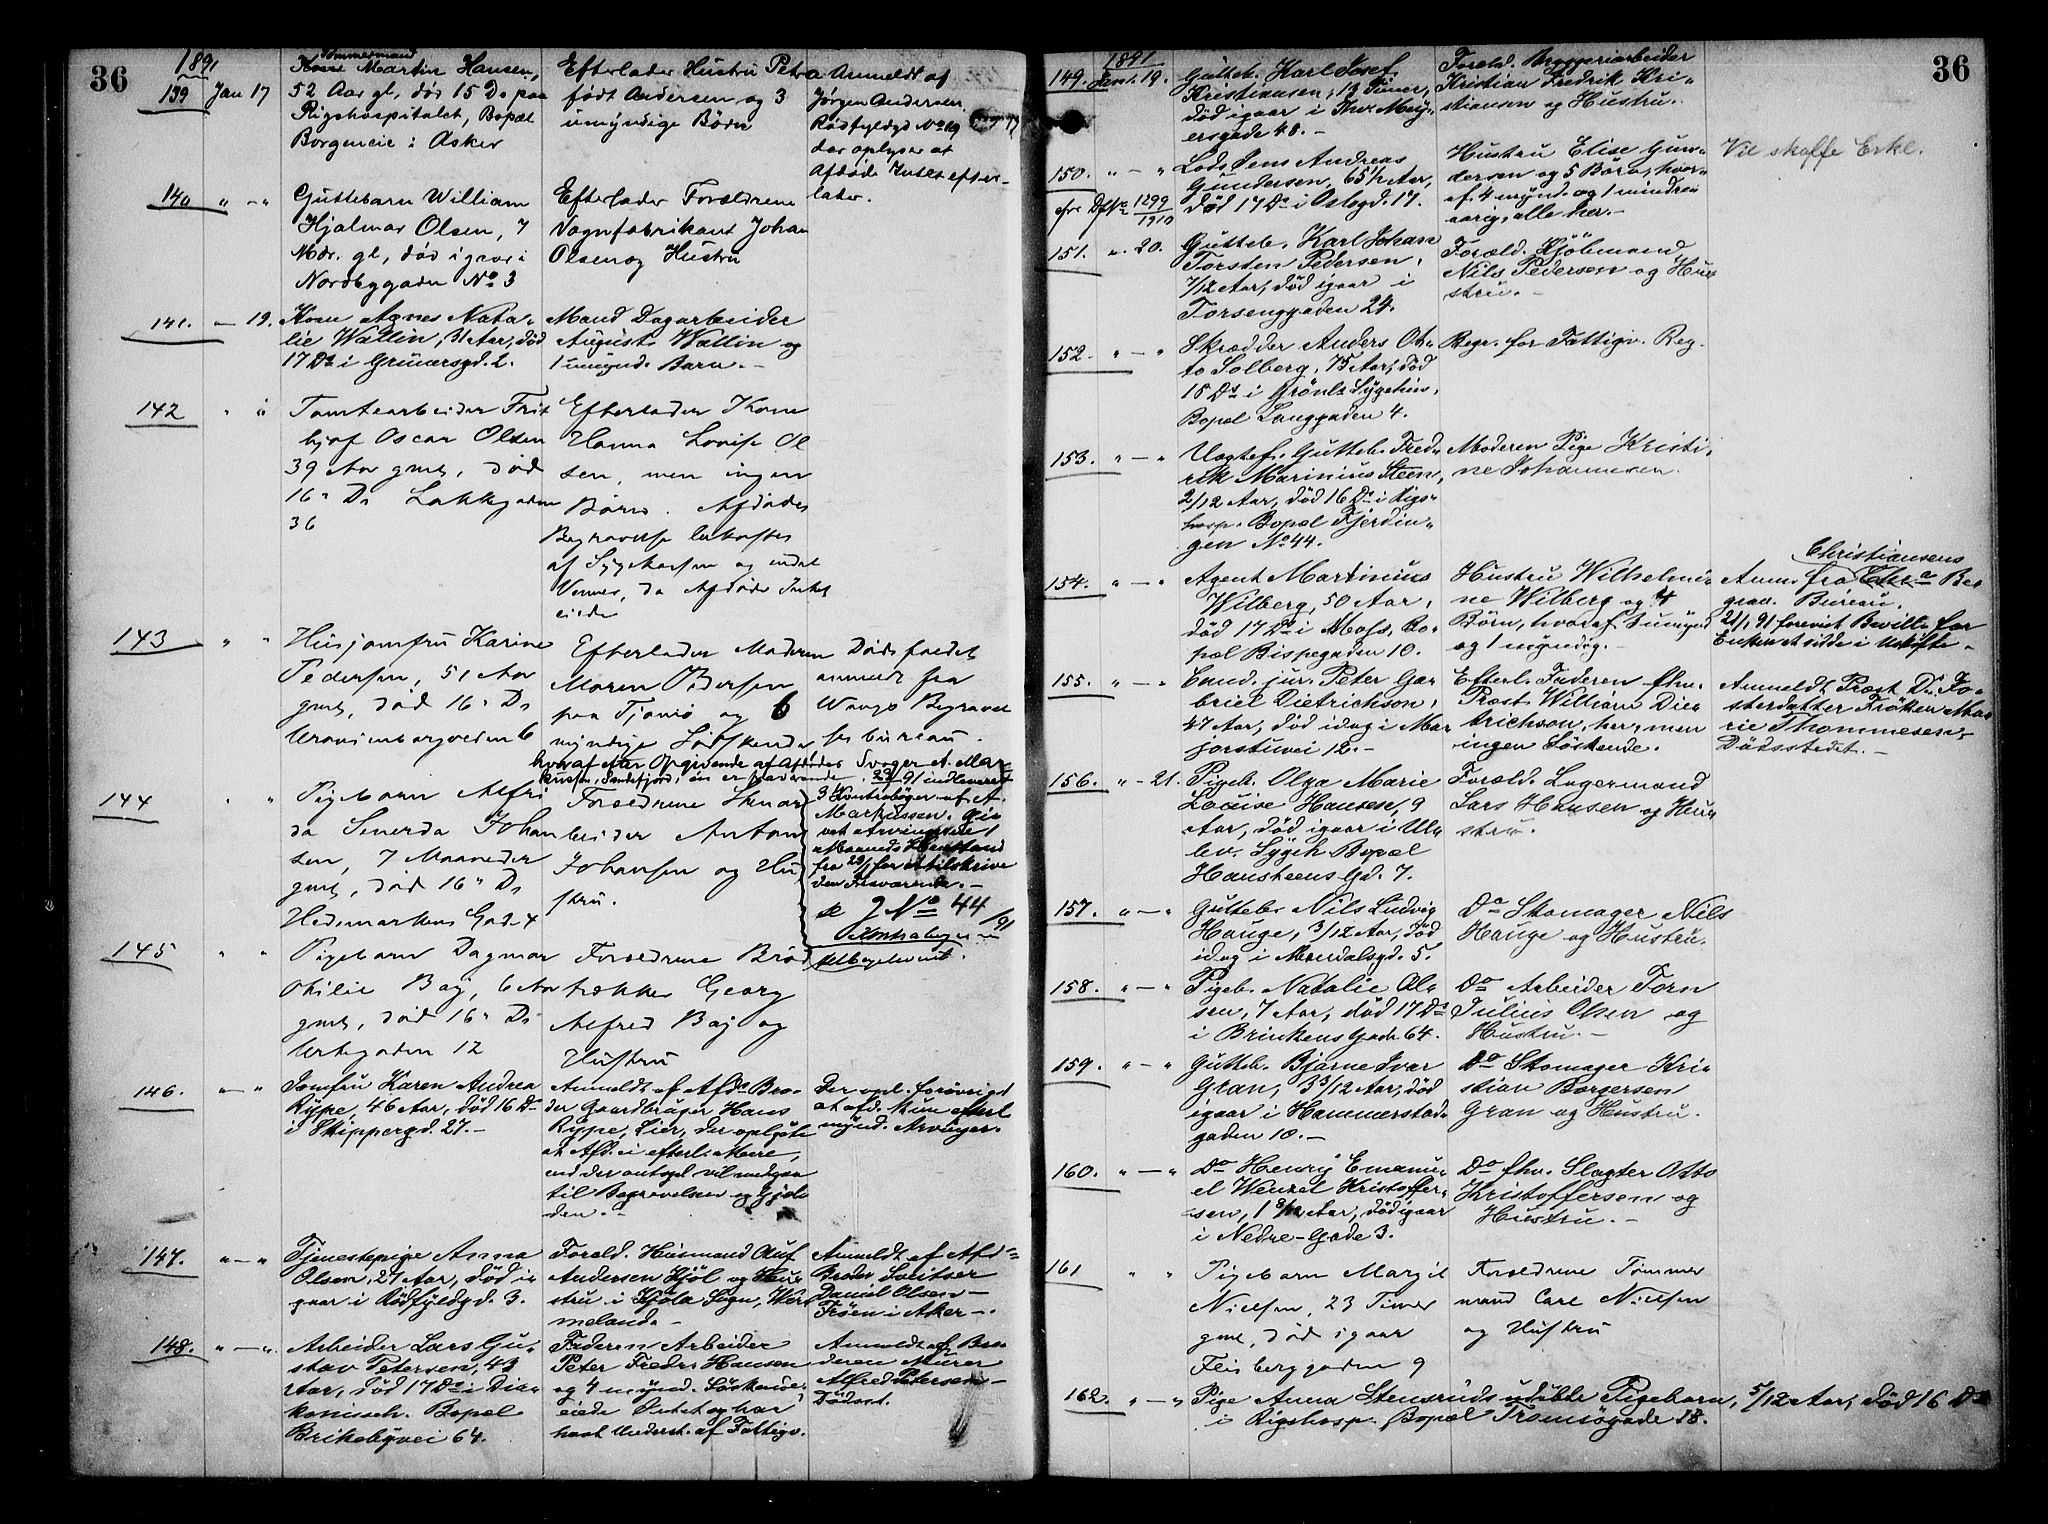 36
1891
139 Jan 17
Tømmermand
Martin Hansen,
52 Aar gl, død 15 Ds paa
Rigshospitalet, Bopæl
Borgeneie i Asker
Efterlader Hustru Petra
født Andersen og 3
umyndige Børn
Anmeldt af
Jørgen Andersen,
Rødfyldgd No 19
der oplyser at
Afdøde Intet efter-
later.
140 " - "
Guttebarn William
Hjalmar Olsen, 7
Mdr. gl, død igaar i
Nordbygaden No 3
Efterlader Forældrene
Vognfabrikant Johan
Olsen og Hustru
141. - 19.
Kone Agnes Nata-
lie Wallin, 31 Aar, død
17 Ds i Grünersgd. 2.
Mand Dagarbeider
August Wallin og
1 umynd. Barn. -
142 " "
Tomtearbeider Frit
hjof Oscar Olsen
39 Aar gml, død
16 Ds Lakkegaden
36
Efterlader Kone
Hanna Lovise Ol
sen, men ingen
Børn. Afdødes
Begravelse bekostes
af Sygekassen og endel
Venner, da Afdøde Intet
eiede
143 " "
Husjomfru Karine
Pedersen, 51 Aar
gml, død 16 Ds
Uranienborgveien 6
Efterlader Moderen
Maren Pedersen
paa Tjømø og 6
myndige Sødskende
hvoraf efter Opgivende af Afdødes Svoger A. Mar
kussen, Sandefjord, en er fraværende.
Dødsfaldet
anmeldt fra
Wangs Begravel
sesbureau.
91 indleveret
3 Kontrabøger af A.
Markussen.
Maaneds Henstand
fra 29/1 for at tilskrive
den Fraværende. -
se J No 44/91
Kontrabøgerne
tilbageleveret.
144 " "
Pigebarn Alfri
da Senerda Johan
sen, 7 Maaneder
gml, død 16 Ds
Hedemarkens Gade 4
Forældrene Stenar
beider Anton
Johansen og Hu
stru.
145 " "
Pigebarn Dagmar
Othilie Baj, 6 Aar
gml, død 16 Ds
Urtegaden 12
Forældrene Brød
trækker Georg
Alfred Baj og
Hustru
146. - "
Jomfru Karen Andrea
Rype, 46 Aar, død 16 Ds
i Skippergd. 27. -
Anmeldt af Afds Bro-
der Gaardbruger Hans
Rype, Lier, der oplyste
at Afd. ei efterl. Mere,
end der antagl. vil medgaa
til Begravelsen og Gjæl
den. -
Der opl. forøvrigt
at afd. kun efterl
mynd. Arvinger.
147. " - "
Tjenestepige Anna
Olsen, 27 Aar, død i
gaar i Rødfyldgd. 3.
Foræld. Husmand Oluf
Andersen Kjöl og Hu-
stru i Kjöla Sogn, Wer
meland. -
Anmeldt af Afds
Broder Sveitser
Daniel Olsen -
Frøen i Aker -.
148. " - "
Arbeider Lars Gu-
stav Petersen, 43
Aar, død 17 Ds i Dia-
konissch. Bopæl
Brikebyvei 64.
Faderen Arbeider
Peter Fredr. Hansen
og 4 mynd. Söskende.
eiede Intet og har
havt Underst. af Fattigv.
Anmeldt af Bro
deren Murer
Alfred Petersen -
Dødsst.
36
1891
149. Jan. 19.
Gutteb. Karl Josef
Kristiansen, 13 Timer,
død igaar i Thv. Mey-
ersgade 48. -
Foræld. Bryggeriarbeider
Kristian Fredrik Kri-
stiansen og Hustru. -
150. " - "
Lods Jens Andreas
Gundersen, 65 1/2 Aar,
død 17 Ds i Oslogd. 17.
1299/1910
Hustru Elise Gun-
dersen og 5 Børn, hvor-
af 4 mynd. og 1 mindre
aarig, alle her. -
Vil skaffe Erkl.
151. " 20.
Gutteb. Karl Johan
Torsten Pedersen,
7/12 Aar, død igaar i
Torsenggaden 24.
Foræld. Kjöbmand
Nils Pedersen og Hu-
stru. -
152. " - "
Skrædder Anders Ot-
to Solberg, 75 Aar, død
18 Ds i Grönls Sygehus,
Bopæl Langgaden 4.
Begr. for Fattigv. Reg.
153. " - "
Uægtef. Gutteb. Fred-
rik Marinius Steen,
2/12 Aar, død 16 Ds i Rigs-
hosp. Bopæl Fjerdin-
gen No 44.
Moderen Pige Kristi-
ne Johannesen.
154. " - "
Agent Martinius
Wilberg, 50 Aar,
død 17 Ds i Moss, Bo-
pæl Bispegaden 10.
Hustru Wilhelmi-
ne Wilberg og 4
Børn, hvoraf 3 umynd
og 1 myndig. -
Christiansens
Anm. fra Be-
grav. Bureau.
21/1 91 forevist Bevill. for
Enken at sidde i Uskifte -
155. " - "
Cand. jur. Peter Ga-
briel Dietrichson,
47 Aar, død idag i Ma-
jorstuvei 12. -
Efterl. Faderen fhv.
Præst William Die-
trichson, her, men
ingen Söskende.
Anmeldt Præst Ds Fo-
sterdatter Frøken Ma-
rie Thommesen,
Dødsstedet. -
156. " - 21.
Pigeb. Olga Marie
Louise Hansen, 9
Aar, død igaar i Ul-
lev. Sygeh Bopæl
Hansteens Gd. 7.
Foræld. Lagermand
Lars Hansen og Hu-
stru.
157. " - "
Gutteb. Nils Ludvig
Hauge, 3/12 Aar, død
idag i Mandalsgd. 5.
Do Skomager Nils
Hauge og Hustru.
158. " - "
Pigeb. Natalie Ol-
sen, 7 Aar, død 17 Ds
i Brinkens Gade 64.
Do Arbeider Torn
Julius Olsen og
Hustru. -
159. " - "
Gutteb. Bjarne Ivar
Gran, 3 3/12 Aar, død
igaar i Hammerstad-
gaden 10. -
Do Skomager Kri-
stian Borgersen
Gran og Hustru.
160. " - "
Do Henrij Emanu-
el Wenzel Kristoffer-
sen, 1 8/12 Aar, død igaar
i Nedre-Gade 3.
Do fhv. Slagter Otto
Kristoffersen og
Hustru. -
161 " "
Pigebarn Margit
Nielsen, 23 Timer
gml, død igaar
Feisberggaden 9
Forældrene Tømmer
mand Carl Nielsen
og Hustru
162. " - "
Pige Anna Stensruds udöbte Pigebarn, 5/12 Aar, død 16 Ds
i Rigshosp. Bopæl Tromsögade 18.